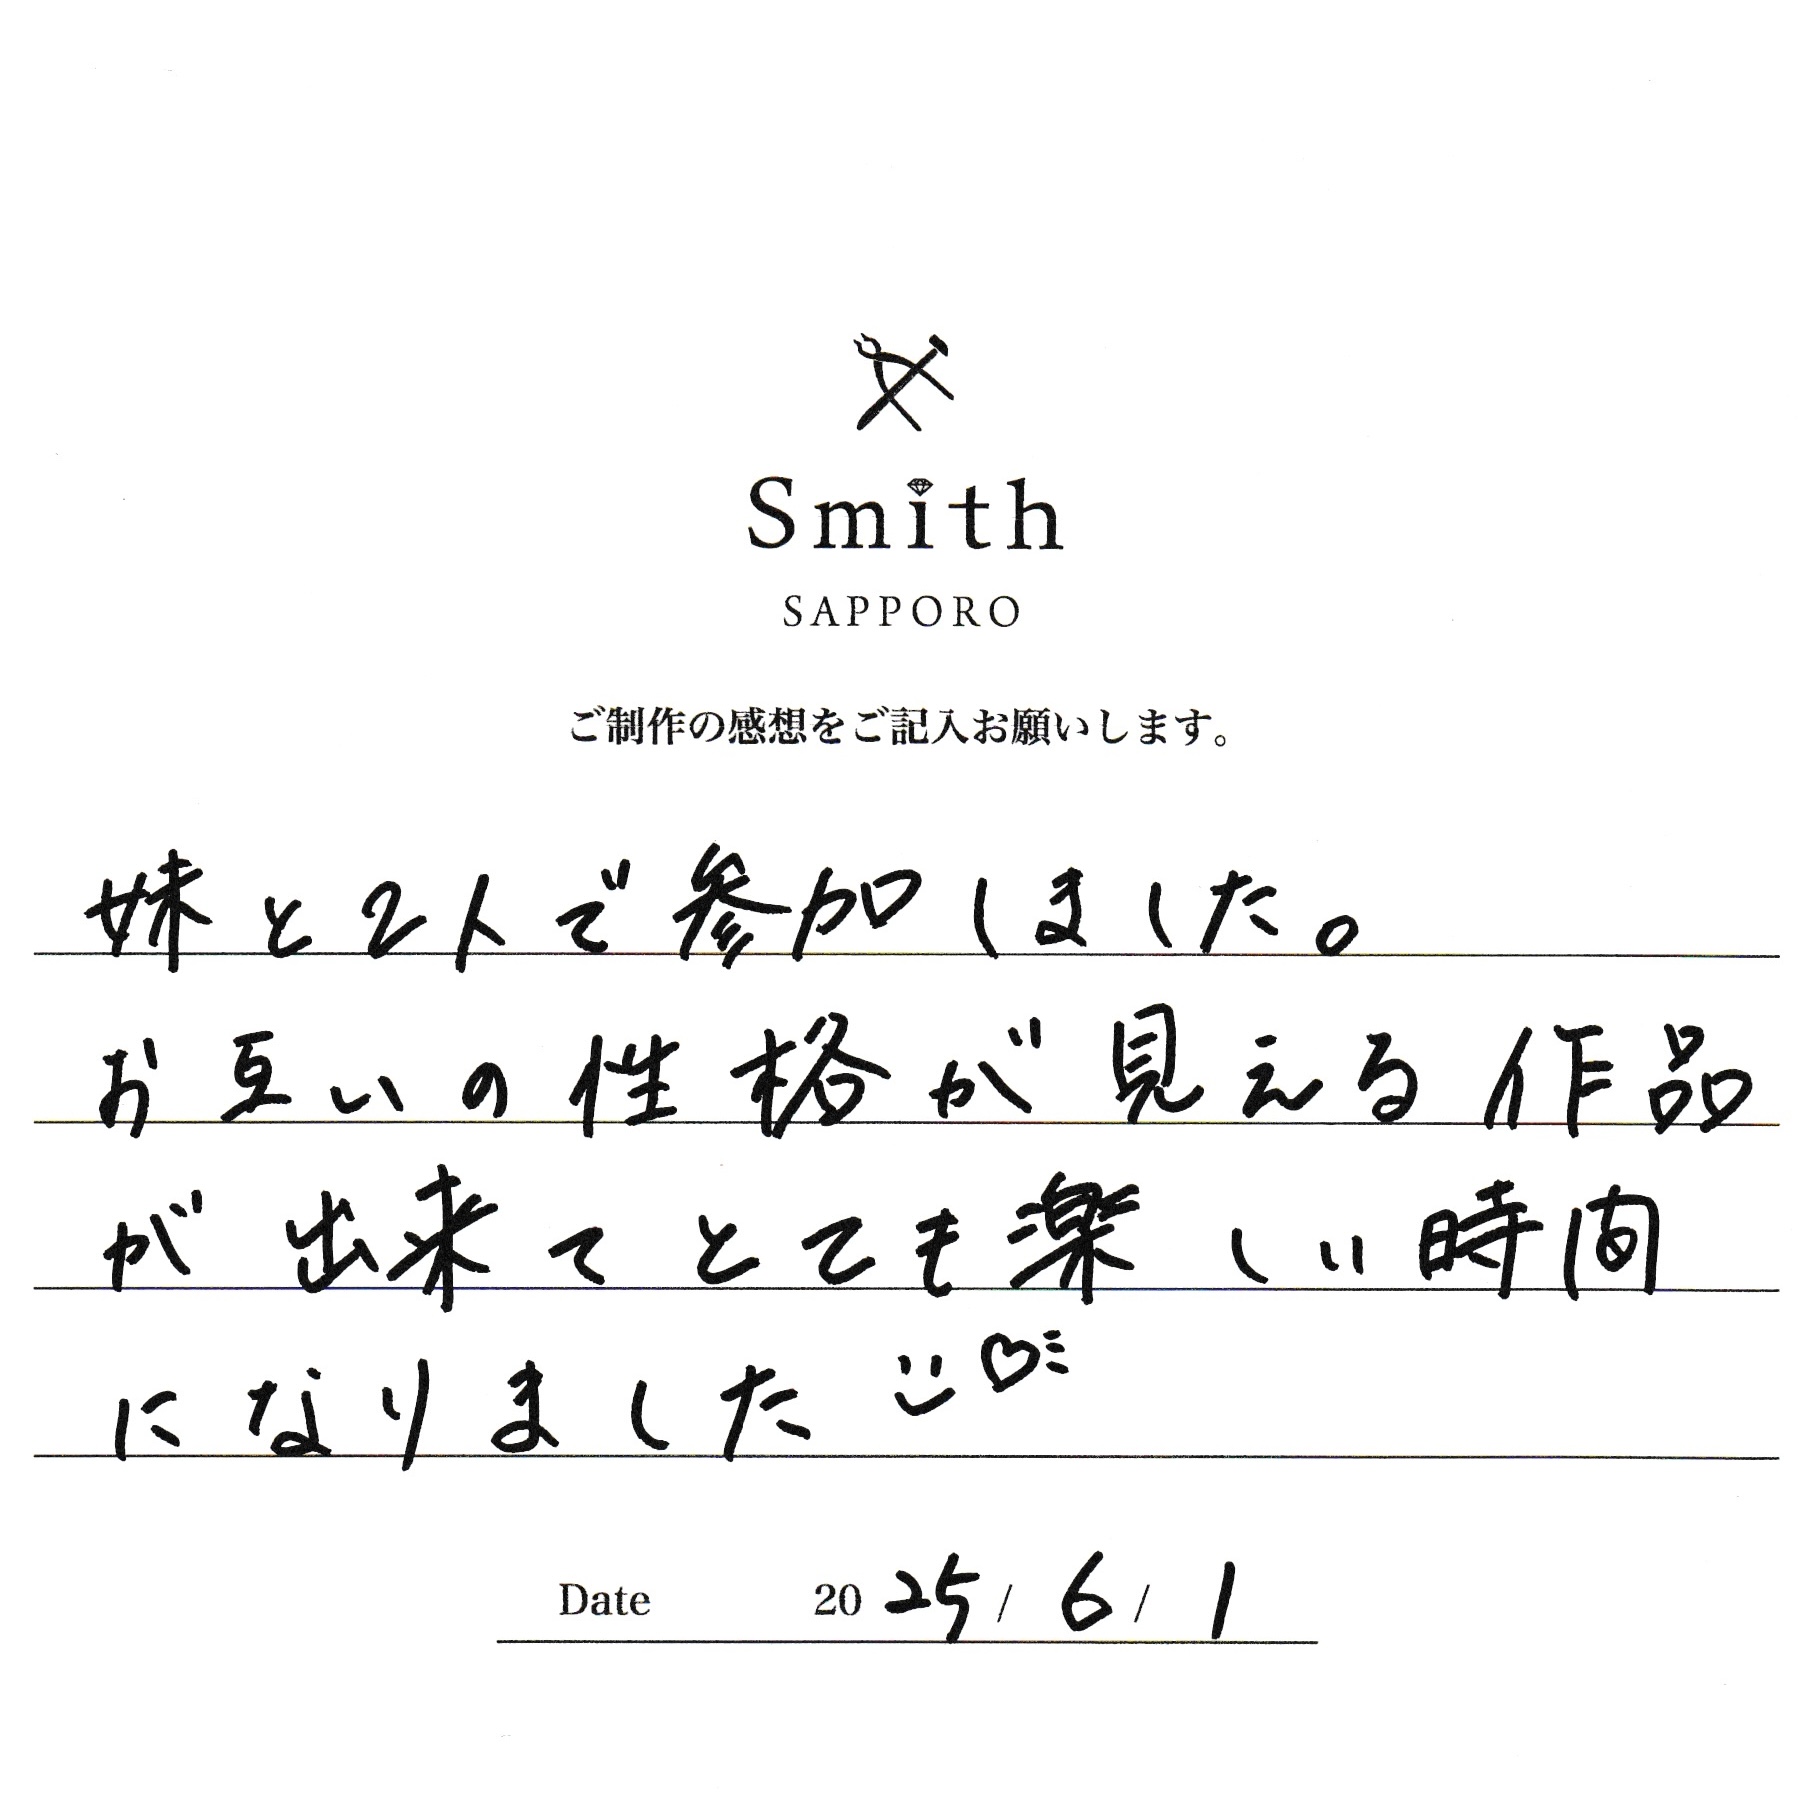 Smith
SAPPORO
ご制作の感想をご記入お願いします。
妹と2人で参加しました。
お互いの性格が見える作品
が出来てとても楽しい時間
になりました
Date 2025/6/1